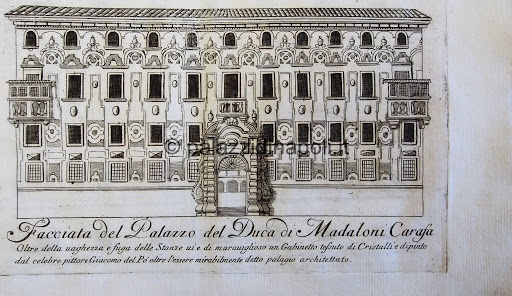 © palazzidinapoli.it
Facciata del Palazzo del Duca di Madaloni Carafa
Oltre della uaghezza e fuga delle Stanze ui e di marauiglioso un Gabinetto tesuto di Cristalli e dipinto
dal celebre pittore Giacomo del Pò oltre l'essere mirabilmente detto palagio architettato.